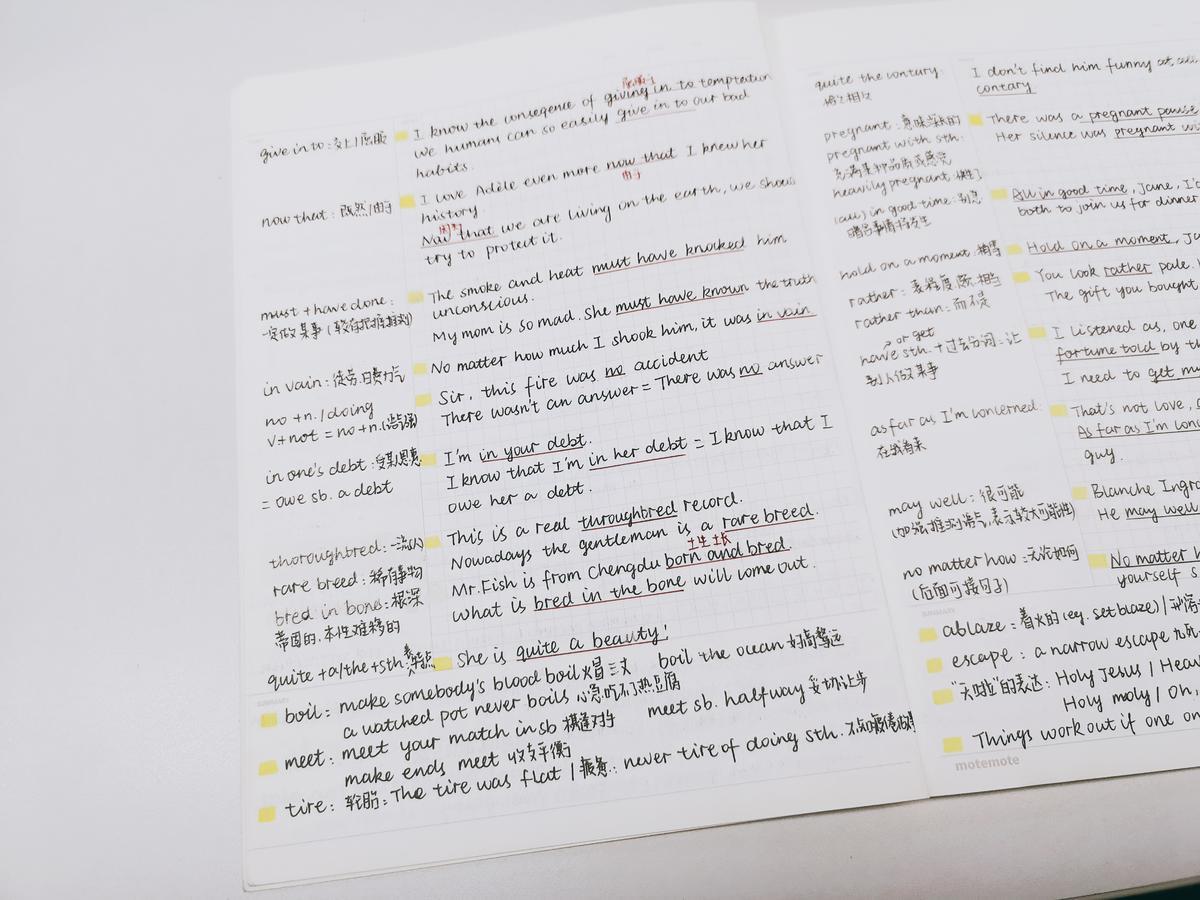 give in to: 交上/屈服
now that: 既然/由于
must + have done:
一定做某事(较有把握推测)
in vain: 徒劳,白费力气
no + n. / doing
v + not = no + n.
in one's debt: 受某恩惠
= owe sb. a debt
thoroughbred: 一流的
rare breed: 稀有事物
bred in bone: 根深
蒂固的,本性难移的
quite + a/the + sth.
屈服于
I know the conseqence of giving in to temptation
We humans can so easily give in to our bad
habits.
I love Adèle even more now that I knew her
由于
history
既然
Now that we are living on the earth, we should
try to protect it.
The smoke and heat must have knocked him
unconscious.
My mom is so mad. She must have known the truth
No matter how much I shook him, it was in vain.
Sir, this fire was no accident
There wasn't an answer = There was no answer
I'm in your debt.
I know that I'm in her debt = I know that I
owe her a debt.
This is a real throughbred record.
Nowadays the gentleman is a rare breed.
土生土长
Mr.Fish is from Chengdu born and bred.
What is bred in the bone will come out.
She is quite a beauty!
boil: make somebody's blood boil 火冒三丈 boil the ocean 好高骛远
a watched pot never boils 心急吃不了热豆腐
meet: meet your match in sb 棋逢对手 meet sb. halfway 妥协让步
make ends meet 收支平衡
tire: 轮胎: The tire was flat / 疲惫: never tire of doing sth.
quite the contary:
恰恰相反
pregnant: 意味深长的
pregnant with sth.
充满某种品质或感觉
heavily pregnant
(all) in good time: 别急
hold on a moment: 稍等
rather: 表程度,颇,相当
rather than: 而不是
or get
have sth. + 过去分词: 让
别人做某事
as far as I'm concerned:
在我看来
may well: 很可能
(加强推测语气,表示较大可能性)
no matter how: 无论如何
(后面可接句子)
I don't find him funny at all
contary
There was a pregnant pause
Her silence was pregnant wi
All in good time, Jane, I'
both to join us for dinner
Hold on a moment, Ja
You look rather pale.
The gift you bought
I listened as, one
fortune told by th
I need to get mu
That's not love,
As far as I'm conc
guy.
Blanche Ingra
He may well
No matter h
yourself s
ablaze: 着火的 (eg. set blaze) /
escape: a narrow escape 九死
"天啦"的表达: Holy Jesus / Heav
Holy moly / Oh,
Things work out if one
motemote